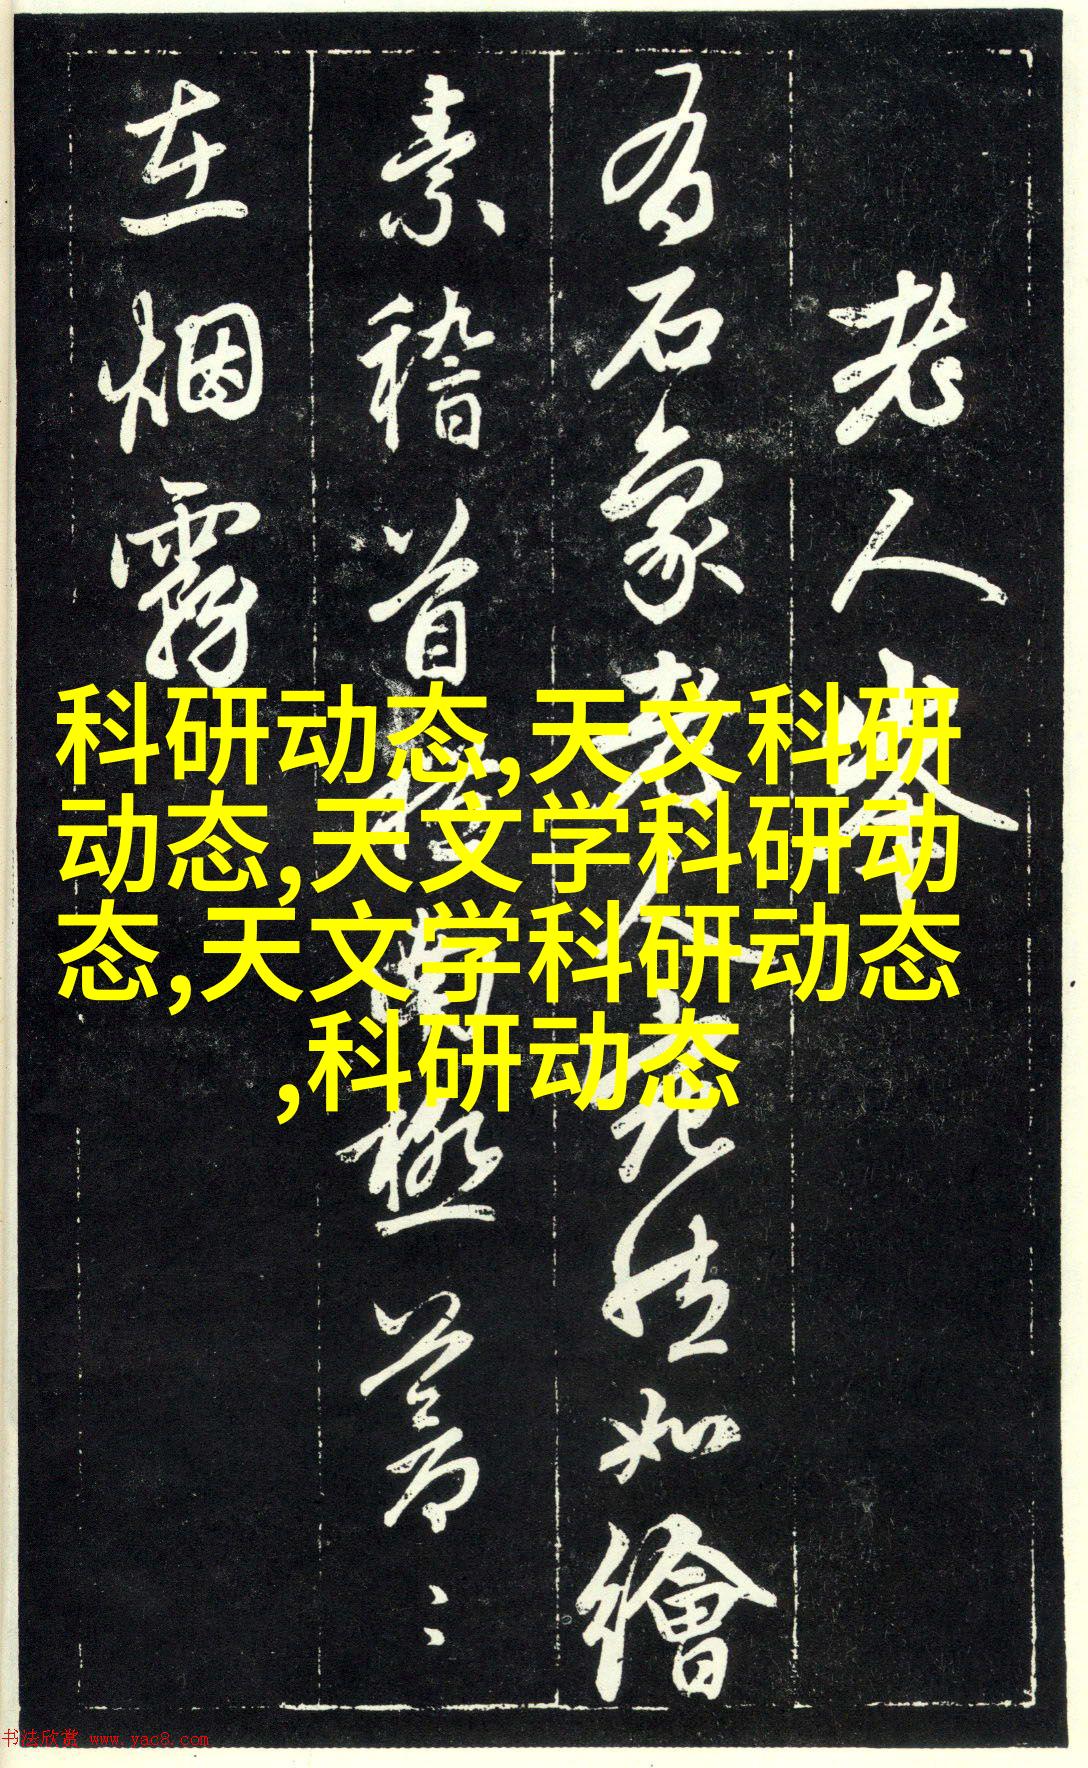 老人峯
有石象老人宛然如繪
素稽首 南極蒼〻
在烟霧
科研动态,天文科研
动态,天文学科研动
态,天文学科研动态
,科研动态
书法欣赏 www.yac8.com